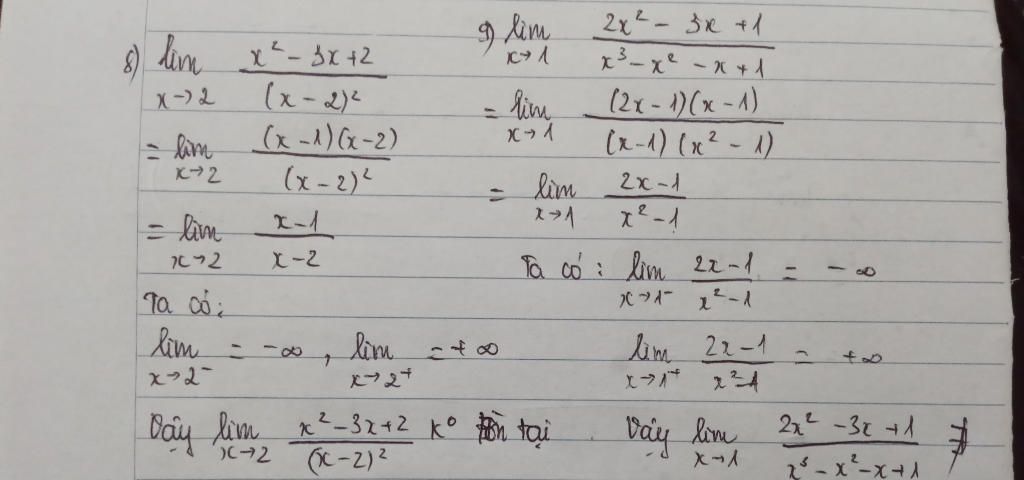 8) lim x→2 (x² - 3x + 2)/((x - 2)²)
= lim x→2 ((x - 1)(x - 2))/((x - 2)²)
= lim x→2 (x - 1)/(x - 2)
Ta có:
lim x→2⁻ = -∞, lim x→2⁺ = +∞
Vậy lim x→2 (x² - 3x + 2)/((x - 2)²) k° tồn tại.
9) lim x→1 (2x² - 3x + 1)/(x³ - x² - x + 1)
= lim x→1 ((2x - 1)(x - 1))/((x - 1)(x² - 1))
= lim x→1 (2x - 1)/(x² - 1)
Ta có: lim x→1⁻ (2x - 1)/(x² - 1) = -∞
lim x→1⁺ (2x - 1)/(x² - 1) = +∞
Vậy lim x→1 (2x² - 3x + 1)/(x³ - x² - x + 1) ∄